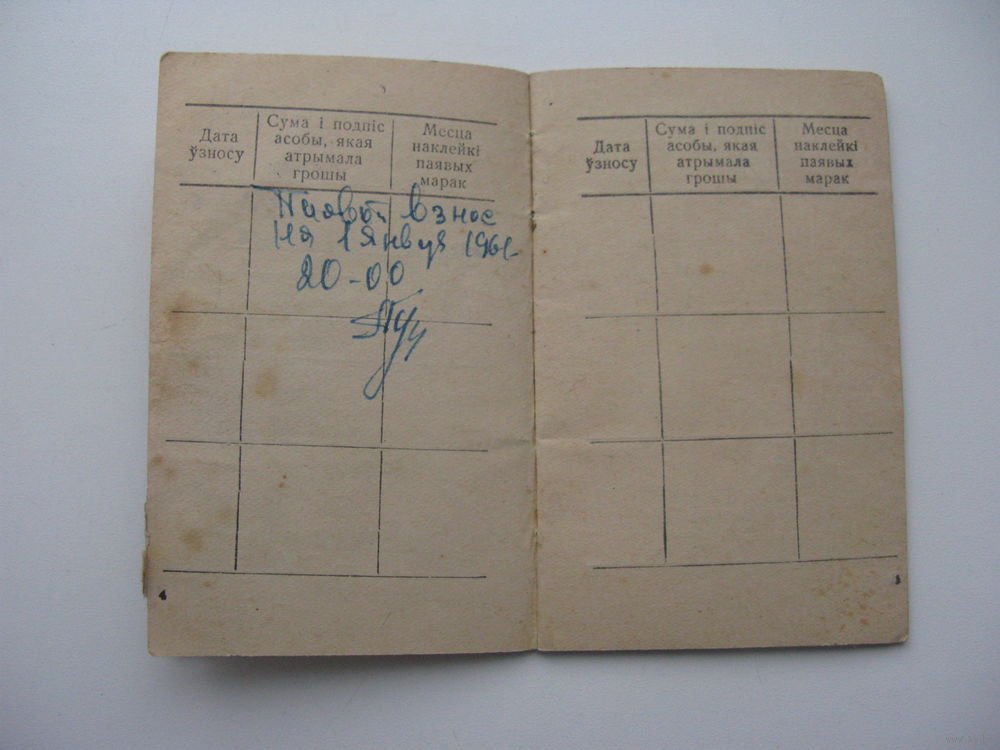 Дата
ўзносу
Сума і подпіс
асобы, якая
атрымала
грошы
Месца
наклейкі
паявых
марак
Паявой взнос
на 1 янвуя 1961-
20-00
4
Дата
ўзносу
Сума і подпіс
асобы, якая
атрымала
грошы
Месца
наклейкі
паявых
марак